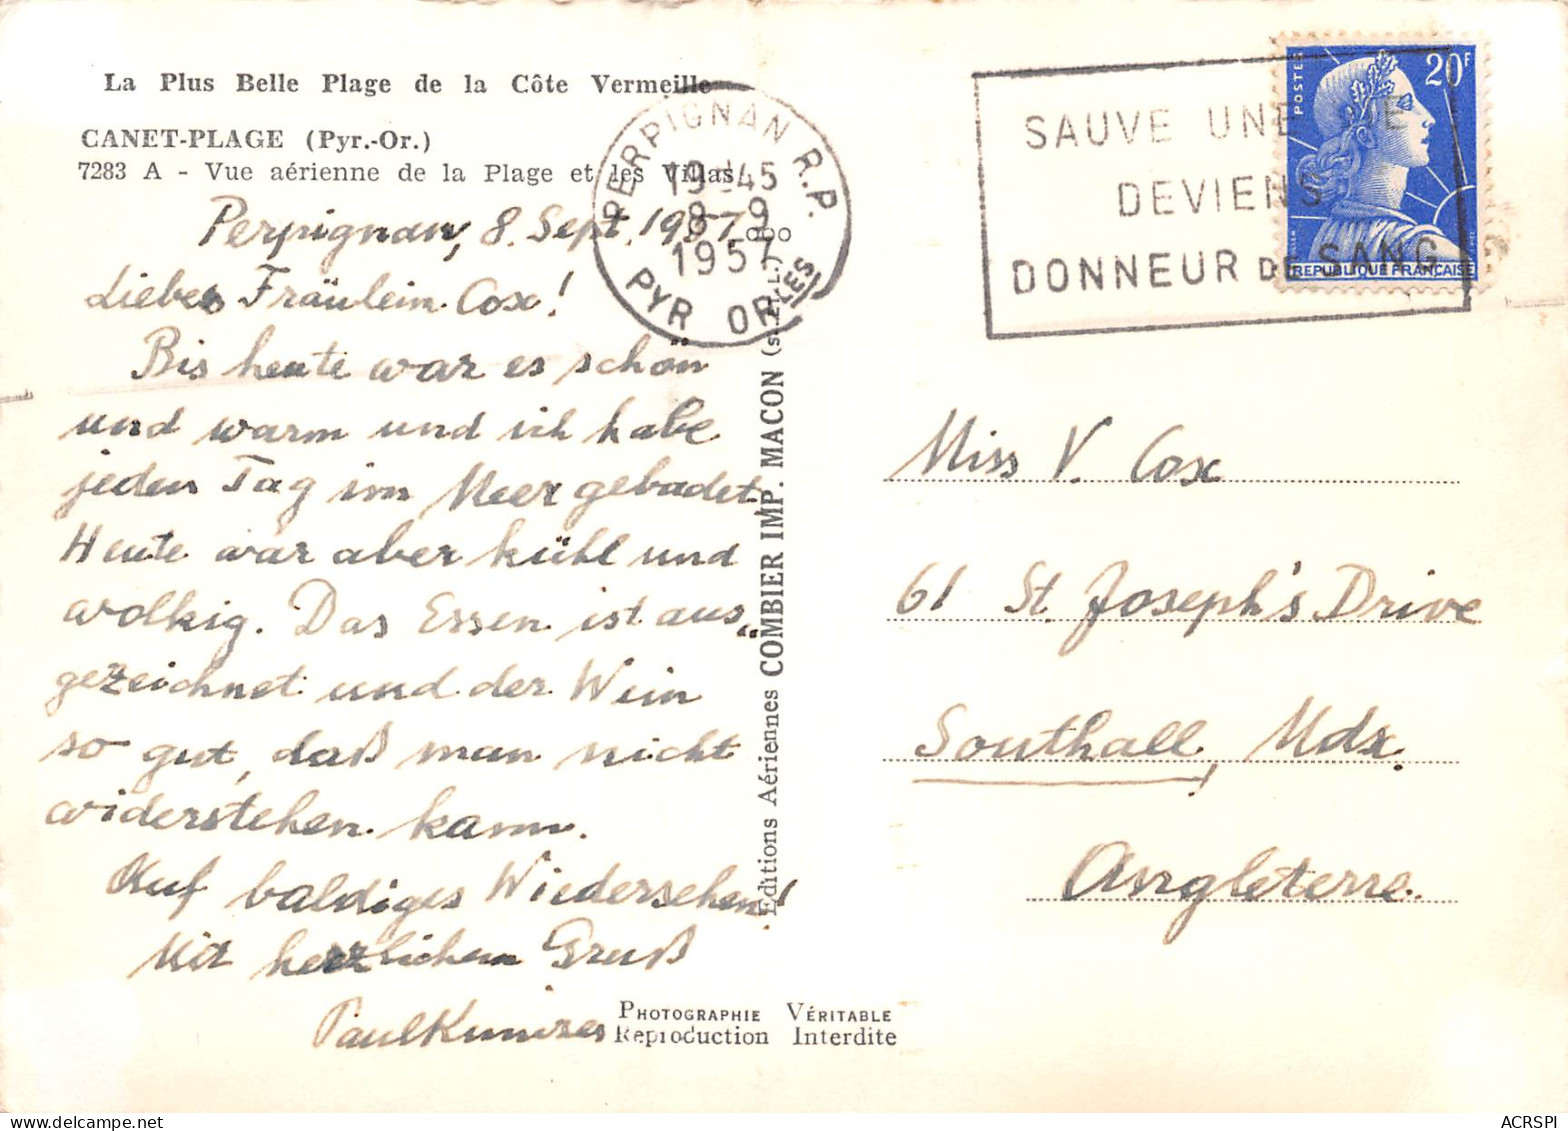 La Plus Belle Plage de la Côte Vermeille
CANET-PLAGE (Pyr.-Or.)
7283 A - Vue aérienne de la Plage et les Villas
Perpignan, 8. Sept. 1957.
Liebes Fräulein Cox!
Bis heute war es schön
und warm und ich habe
jeden Tag im Meer gebadet.
Heute war aber kühl und
wolkig. Das Essen ist aus„
gezeichnet und der Wein
so gut, daß man nicht
widerstehen kann.
Auf baldiges Wiedersehen!
Mit herzlichem Gruß
Paul
PHOTOGRAPHIE VÉRITABLE
Reproduction Interdite
Editions Aériennes COMBIER IMP. MACON
PERPIGNAN R.P.
19 45
8-9
1957
PYR ORLES
SAUVE UNE VIE
DEVIENS
DONNEUR DE SANG
POSTES
20F
REPUBLIQUE FRANÇAISE
Miss V. Cox
61 St. Joseph's Drive
Southall, Mdx.
Angleterre.
ACRSPI